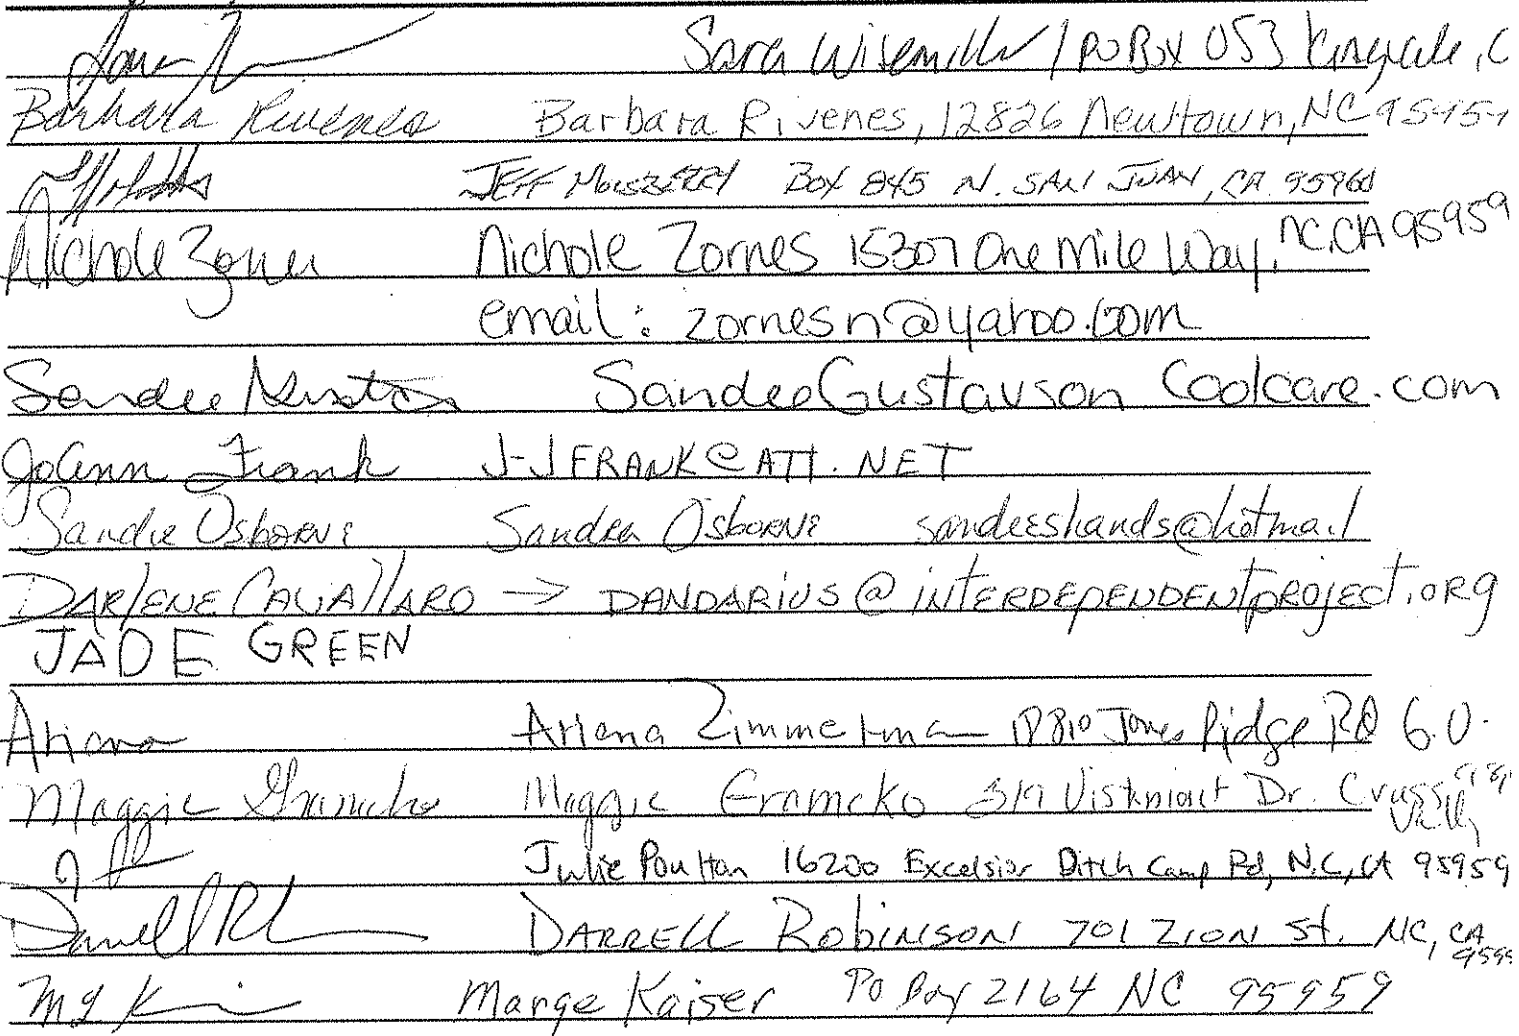 Sara Wisemiller / PO Box 053 Kingvale, C
Barbara Rivenes Barbara Rivenes, 12826 Newtown, NC 95959
JEFF Box 845 N. SAN JUAN, CA 95960
Nichole Zornes Nichole Zornes 15307 One Mile Way, NC, CA 95959
email: zornesn@yahoo.com
Sandee Sandee Gustavson Coolcare.com
JoAnn Frank J-JFRANK@ATT.NET
Sandie Osborne Sandra Osborne sandeeshands@hotmail
DARLENE CAVALLARO -> DANDARIUS@INTERDEPENDENTPROJECT.ORG
JADE GREEN
Ariana Ariana Zimmerman Jones Ridge Rd G.V.
Maggie Maggie Dr. Grass Vally
Julie Poulton 16200 Excelsior Ditch Camp Rd, N.C, CA 95959
Darrell DARRELL ROBINSON 701 ZION St. NC, CA 9595
Marge Kaiser PO Box 2164 NC 95959